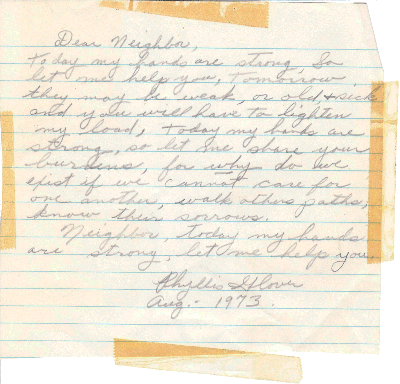 Dear Neighbor,
Today my hands are strong, So
let me help you, Tomorrow
they may be weak, or old & sick
and you will have to lighten
my load, Today my hands are
strong, so let me share your
burdens, for why do we
exist if we cannot care for
one another, walk others paths,
know their sorrows.
Neighbor, today my hands
are strong, let me help you.
Phyllis Glover
Aug. - 1973.